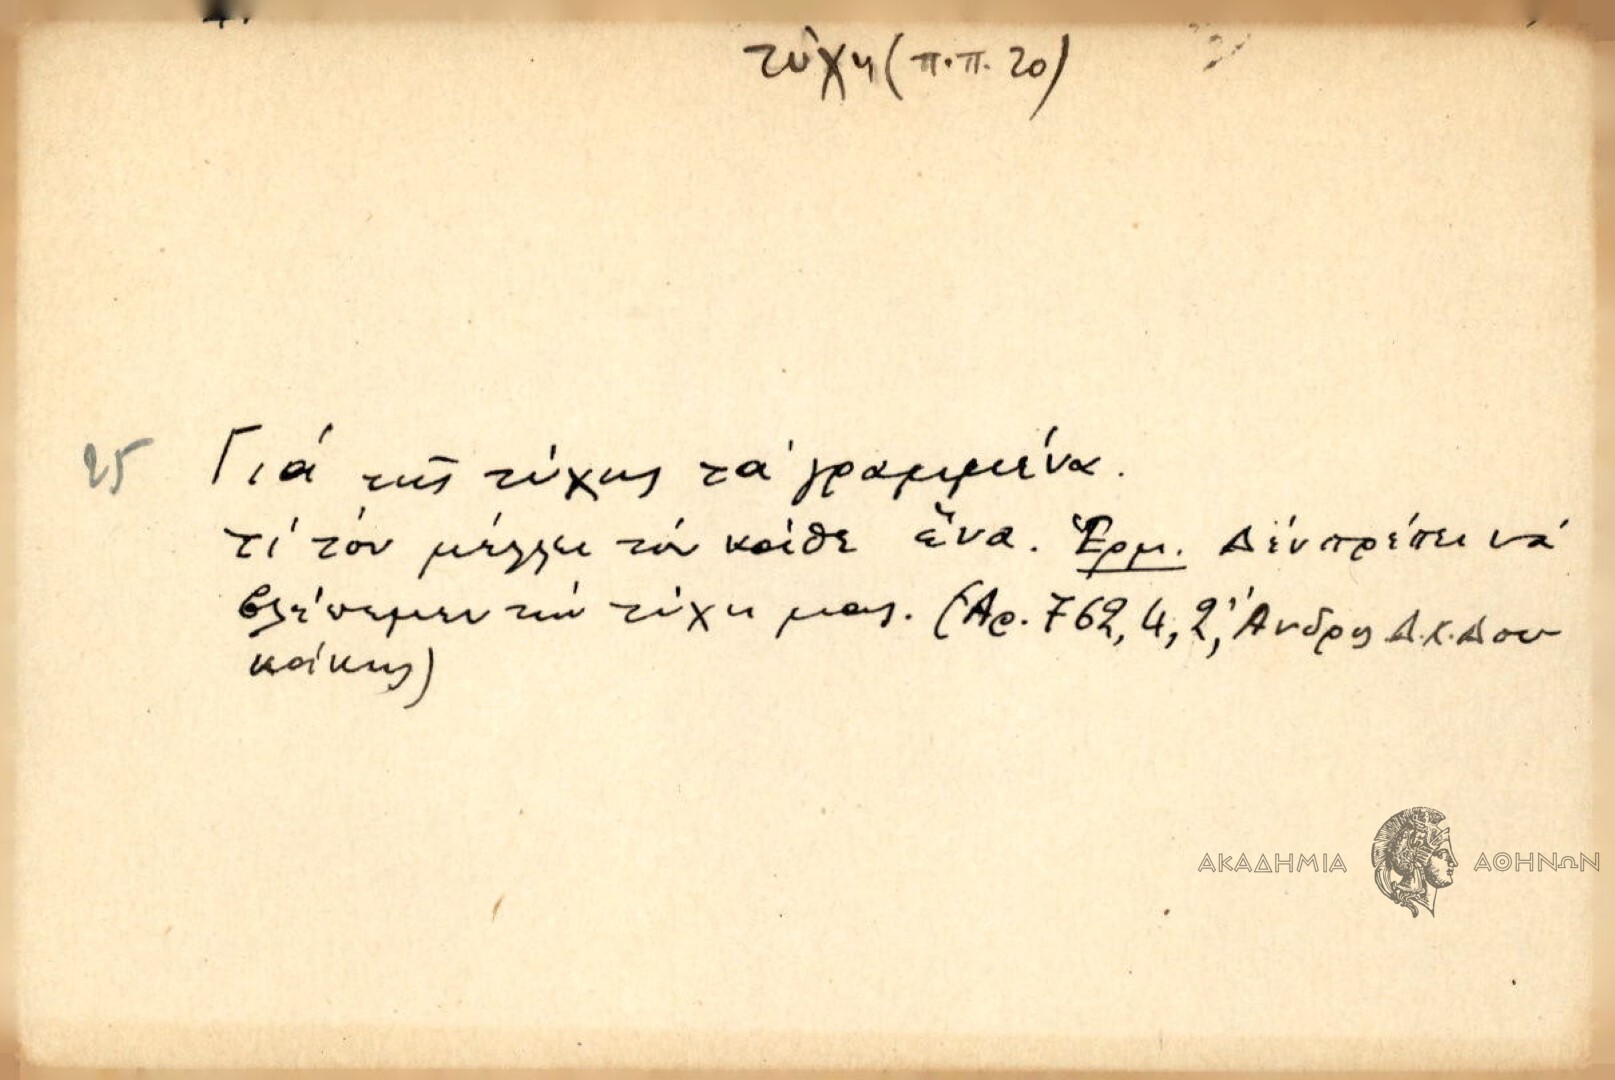 τύχη (π.π. 20)
25 Γιά τῆς τύχης τά γραμμένα.
τί τόν μέλλει τόν κάθε ἕνα. Ἑρμ. Δέν πρέπει νά
βλέπεμεν τήν τύχη μας. (Ἀρ. 762, 4, 2, Ἄνδρος Δ.Χ. Δου
κάκης)
ΑΚΑΔΗΜΙΑ ΑΘΗΝΩΝ